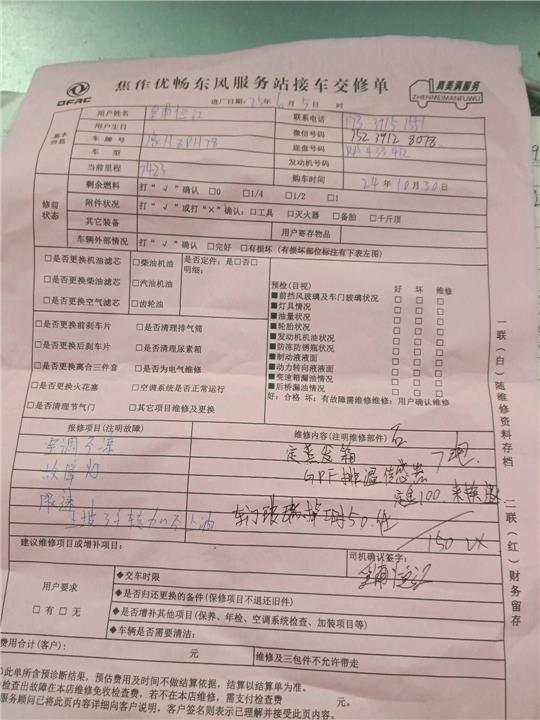 DFAC
焦作优畅东风服务站接车交修单
真美满服务
ZHENMEIMANFUWU
进厂日期：25年6月5日 时
基本信息
用户姓名
联系电话
用户生日
微信号码 152 3912 8078
车牌号
底盘号码
车型
发动机号码
当前里程 7423
购车时间 24年10月30日
修前状态
剩余燃料 打“√”确认 □0 □1/4 □1/2 □1
附件状况 打“√”或打“×”确认：□工具 □灭火器 □备胎 □千斤顶
其它装备 用户寄存物品
车辆外部情况 打“√”确认 □完好 □有损坏（有损坏部位标注有下表左图）
□是否更换机油滤芯 □柴油机油 是否定件：是□否□
明细：
□是否更换柴油滤芯 □汽油机油
□是否更换空气滤芯 □齿轮油
□是否更换前刹车片 □是否清理排气筒
□是否更换后刹车片 □是否清理尿素箱
□是否更换离合三件套 □是否为电气维修
□是否更换火花塞 □空调系统是否正常运行
□是否清理节气门 □其它项目维修及更换
预检(目视) 好 坏 维修
■前挡风玻璃及车门玻璃状况 □ □ □
■灯具情况 □ □ □
■油量状况 □ □ □
■轮胎状况 □ □ □
■发动机机油状况 □ □ □
■防冻防锈瓶状况 □ □ □
■制动液液面 □ □ □
■动力转向液液面 □ □ □
■变速箱漏油情况 □ □ □
■后桥漏油情况 □ □ □
好：合格 坏：有故障需维修维修：用户确认维修
报修项目(注明故障)
维修内容(注明维修部件)
空调不凉
故障灯
限速
定蒸发箱
GPF排温传感器
定金100
车门玻璃
150
建议维修项目或增补项目：
司机确认签字：
用户要求
□有 □无
◆交车时限
◆是否归还更换的备件(保修项目不退还旧件)
◆是否增补其他项目(保养、年检、空调系统检查、加装项目等)
◆车辆是否需要清洁：
费用合计(客户)： 元 维修及三包件不允许带走
此单所含预诊断结果，预估费用及时间不做结算依据，结算以结算单为准。
检查出故障在本店维修免收检查费，若不在本店维修，需支付检查费 元。
服务顾问已将此页内容详细向客户说明，客户签名则表示已理解并接受此页内容。
一联（白）随维修资料存档
二联（红）财务留存